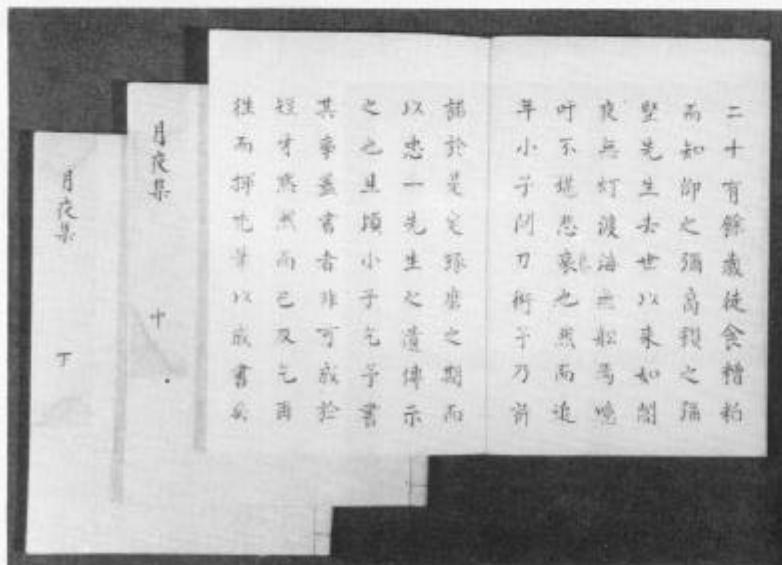 二十有餘歳徒食糟粕
而知仰之彌高鑚之彌
堅先生去世以来如闇
夜無灯渡海無舩焉噫
吁不堪悲哀之然而追
年小子問刀術予乃許
諾於是定琢磨之期而
以忠一先生之遺傳示
之也且頃小子乞予書
其事蓋書者非可成於
短才黙然而已及乞再
往而揮禿筆以成書矣
月夜集
月夜集